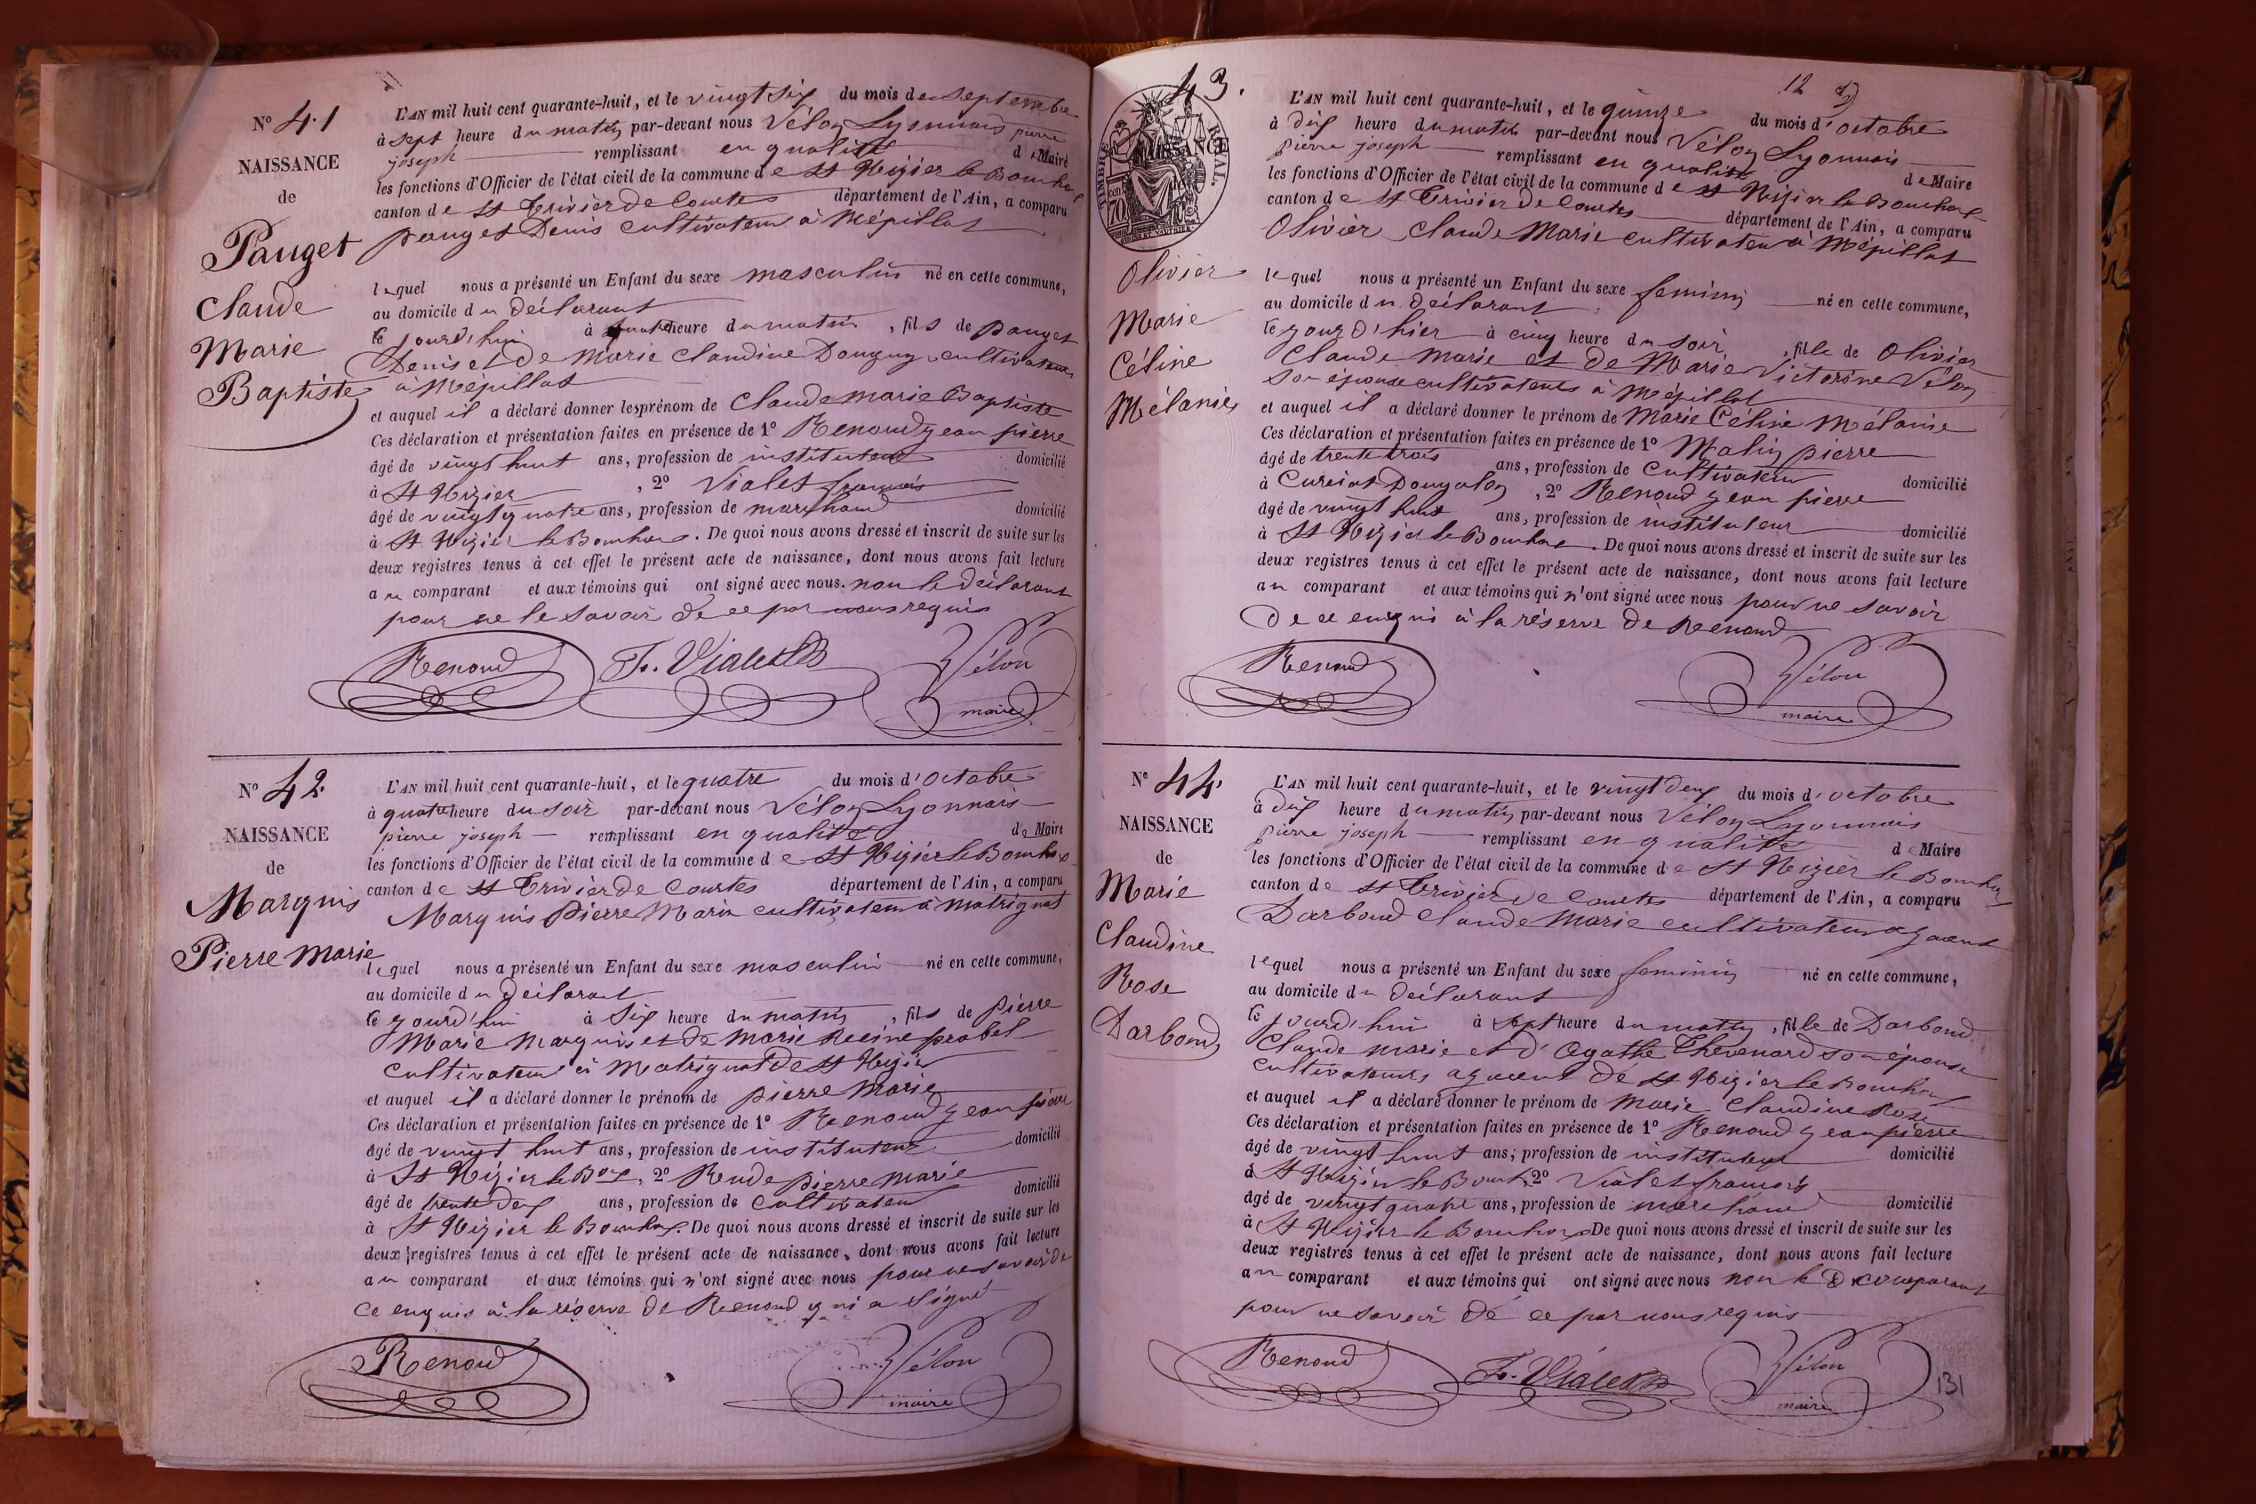 N° 41
NAISSANCE
de
Pauget
Claude
Marie
Baptiste
L'AN mil huit cent quarante-huit, et le vingt six du mois de septembre
à sept heure du matin par-devant nous Vélon Lyonnais pierre
joseph remplissant en qualité de Maire
les fonctions d'Officier de l'état civil de la commune de St Nizier le Bouchoux
canton de St Trivier de Courtes département de l'Ain, a comparu
pauget Denis cultivateur à Mépillat
lequel nous a présenté un Enfant du sexe masculin né en cette commune,
au domicile du déclarant
le jourd'hui à quatre heure du matin, fils de pauget
Denis et de Marie Claudine Donguy cultivateurs
à Mépillat
et auquel il a déclaré donner les prénom de Claude marie Baptiste
Ces déclaration et présentation faites en présence de 1° Renoud jean pierre
âgé de vingt huit ans, profession de instituteur domicilié
à St Nizier, 2° Vialet françois
âgé de vingt quatre ans, profession de marchand domicilié
à St Nizier le Bouchoux. De quoi nous avons dressé et inscrit de suite sur les
deux registres tenus à cet effet le présent acte de naissance, dont nous avons fait lecture
au comparant et aux témoins qui ont signé avec nous. non le déclarant
pour ne le savoir de ce par nous requis
Renoud F. Vialet Vélon
maire
N° 42
NAISSANCE
de
Marquis
Pierre Marie
L'AN mil huit cent quarante-huit, et le quatre du mois d'octobre
à quatre heure du soir par-devant nous Vélon Lyonnais
pierre joseph remplissant en qualité de Maire
les fonctions d'Officier de l'état civil de la commune de St Nizier le Bouchoux
canton de St Trivier de Courtes département de l'Ain, a comparu
Marquis Pierre Marie cultivateur à Matrignat
lequel nous a présenté un Enfant du sexe masculin né en cette commune,
au domicile du déclarant
le jourd'hui à six heure du matin, fils de pierre
Marie Marquis et de Marie Reine prabel
cultivateurs à Matrignat de St Nizier
et auquel il a déclaré donner le prénom de pierre Marie
Ces déclaration et présentation faites en présence de 1° Renoud jean pierre
âgé de vingt huit ans, profession de instituteur domicilié
à St Nizier le Boux, 2° Rude pierre marie
âgé de trente deux ans, profession de cultivateur domicilié
à St Nizier le Bouchoux. De quoi nous avons dressé et inscrit de suite sur les
deux registres tenus à cet effet le présent acte de naissance, dont nous avons fait lecture
au comparant et aux témoins qui n'ont signé avec nous pour ne savoir de
ce enquis à la réserve de Renoud qui a signé
Renoud Vélon
maire
12
43.
NAISSANCE
TIMBRE ROYAL
70
Olivier
Marie
Céline
Mélanie
L'AN mil huit cent quarante-huit, et le quinze du mois d'octobre
à dix heure du matin par-devant nous Vélon Lyonnais
pierre joseph remplissant en qualité de Maire
les fonctions d'Officier de l'état civil de la commune de St Nizier le Bouchoux
canton de St Trivier de Courtes département de l'Ain, a comparu
Olivier Claude Marie cultivateur à Mépillat
lequel nous a présenté un Enfant du sexe feminin né en cette commune,
au domicile du déclarant
le jour d'hier à cinq heure du soir, fille de Olivier
Claude Marie et de Marie Victorine Vélon
son épouse cultivateurs à Mépillat
et auquel il a déclaré donner le prénom de Marie Céline Mélanie
Ces déclaration et présentation faites en présence de 1° Matin pierre
âgé de trente trois ans, profession de cultivateur domicilié
à Curciat Dongalon, 2° Renoud jean pierre
âgé de vingt huit ans, profession de instituteur domicilié
à St Nizier le Bouchoux. De quoi nous avons dressé et inscrit de suite sur les
deux registres tenus à cet effet le présent acte de naissance, dont nous avons fait lecture
au comparant et aux témoins qui n'ont signé avec nous pour ne savoir
de ce enquis à la réserve de Renoud
Renoud Vélon
maire
N° 44
NAISSANCE
de
Marie
Claudine
Rose
Darboud
L'AN mil huit cent quarante-huit, et le vingt deux du mois d'octobre
à dix heure du matin par-devant nous Vélon Lyonnais
pierre joseph remplissant en qualité de Maire
les fonctions d'Officier de l'état civil de la commune de St Nizier le Bouchoux
canton de St Trivier de Courtes département de l'Ain, a comparu
Darboud Claude Marie cultivateur
lequel nous a présenté un Enfant du sexe feminin né en cette commune,
au domicile du déclarant
le jourd'hui à sept heure du matin, fille de Darboud
Claude marie et d'Agathe Thevenard son épouse
cultivateurs de St Nizier le Bouchoux
et auquel il a déclaré donner le prénom de Marie Claudine Rose
Ces déclaration et présentation faites en présence de 1° Renoud jean pierre
âgé de vingt huit ans, profession de instituteur domicilié
à St Nizier le Bouch. 2° Vialet françois
âgé de vingt quatre ans, profession de marchand domicilié
à St Nizier le Bouchoux De quoi nous avons dressé et inscrit de suite sur les
deux registres tenus à cet effet le présent acte de naissance, dont nous avons fait lecture
au comparant et aux témoins qui ont signé avec nous non le comparant
pour ne savoir de ce par nous requis
Renoud F. Vialet Vélon
maire
131